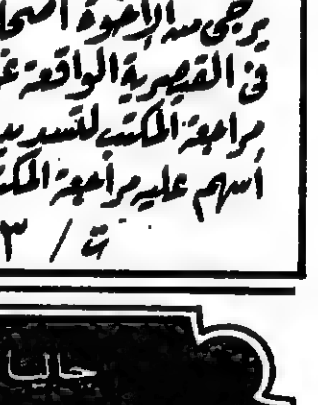 يرجى من الأخوة أصحا
في القيصرية الواقعة عر
مراجعة المكتب لتسديد
أسهم عليه مراجعة المكتـ
ت / ٣
جاليا